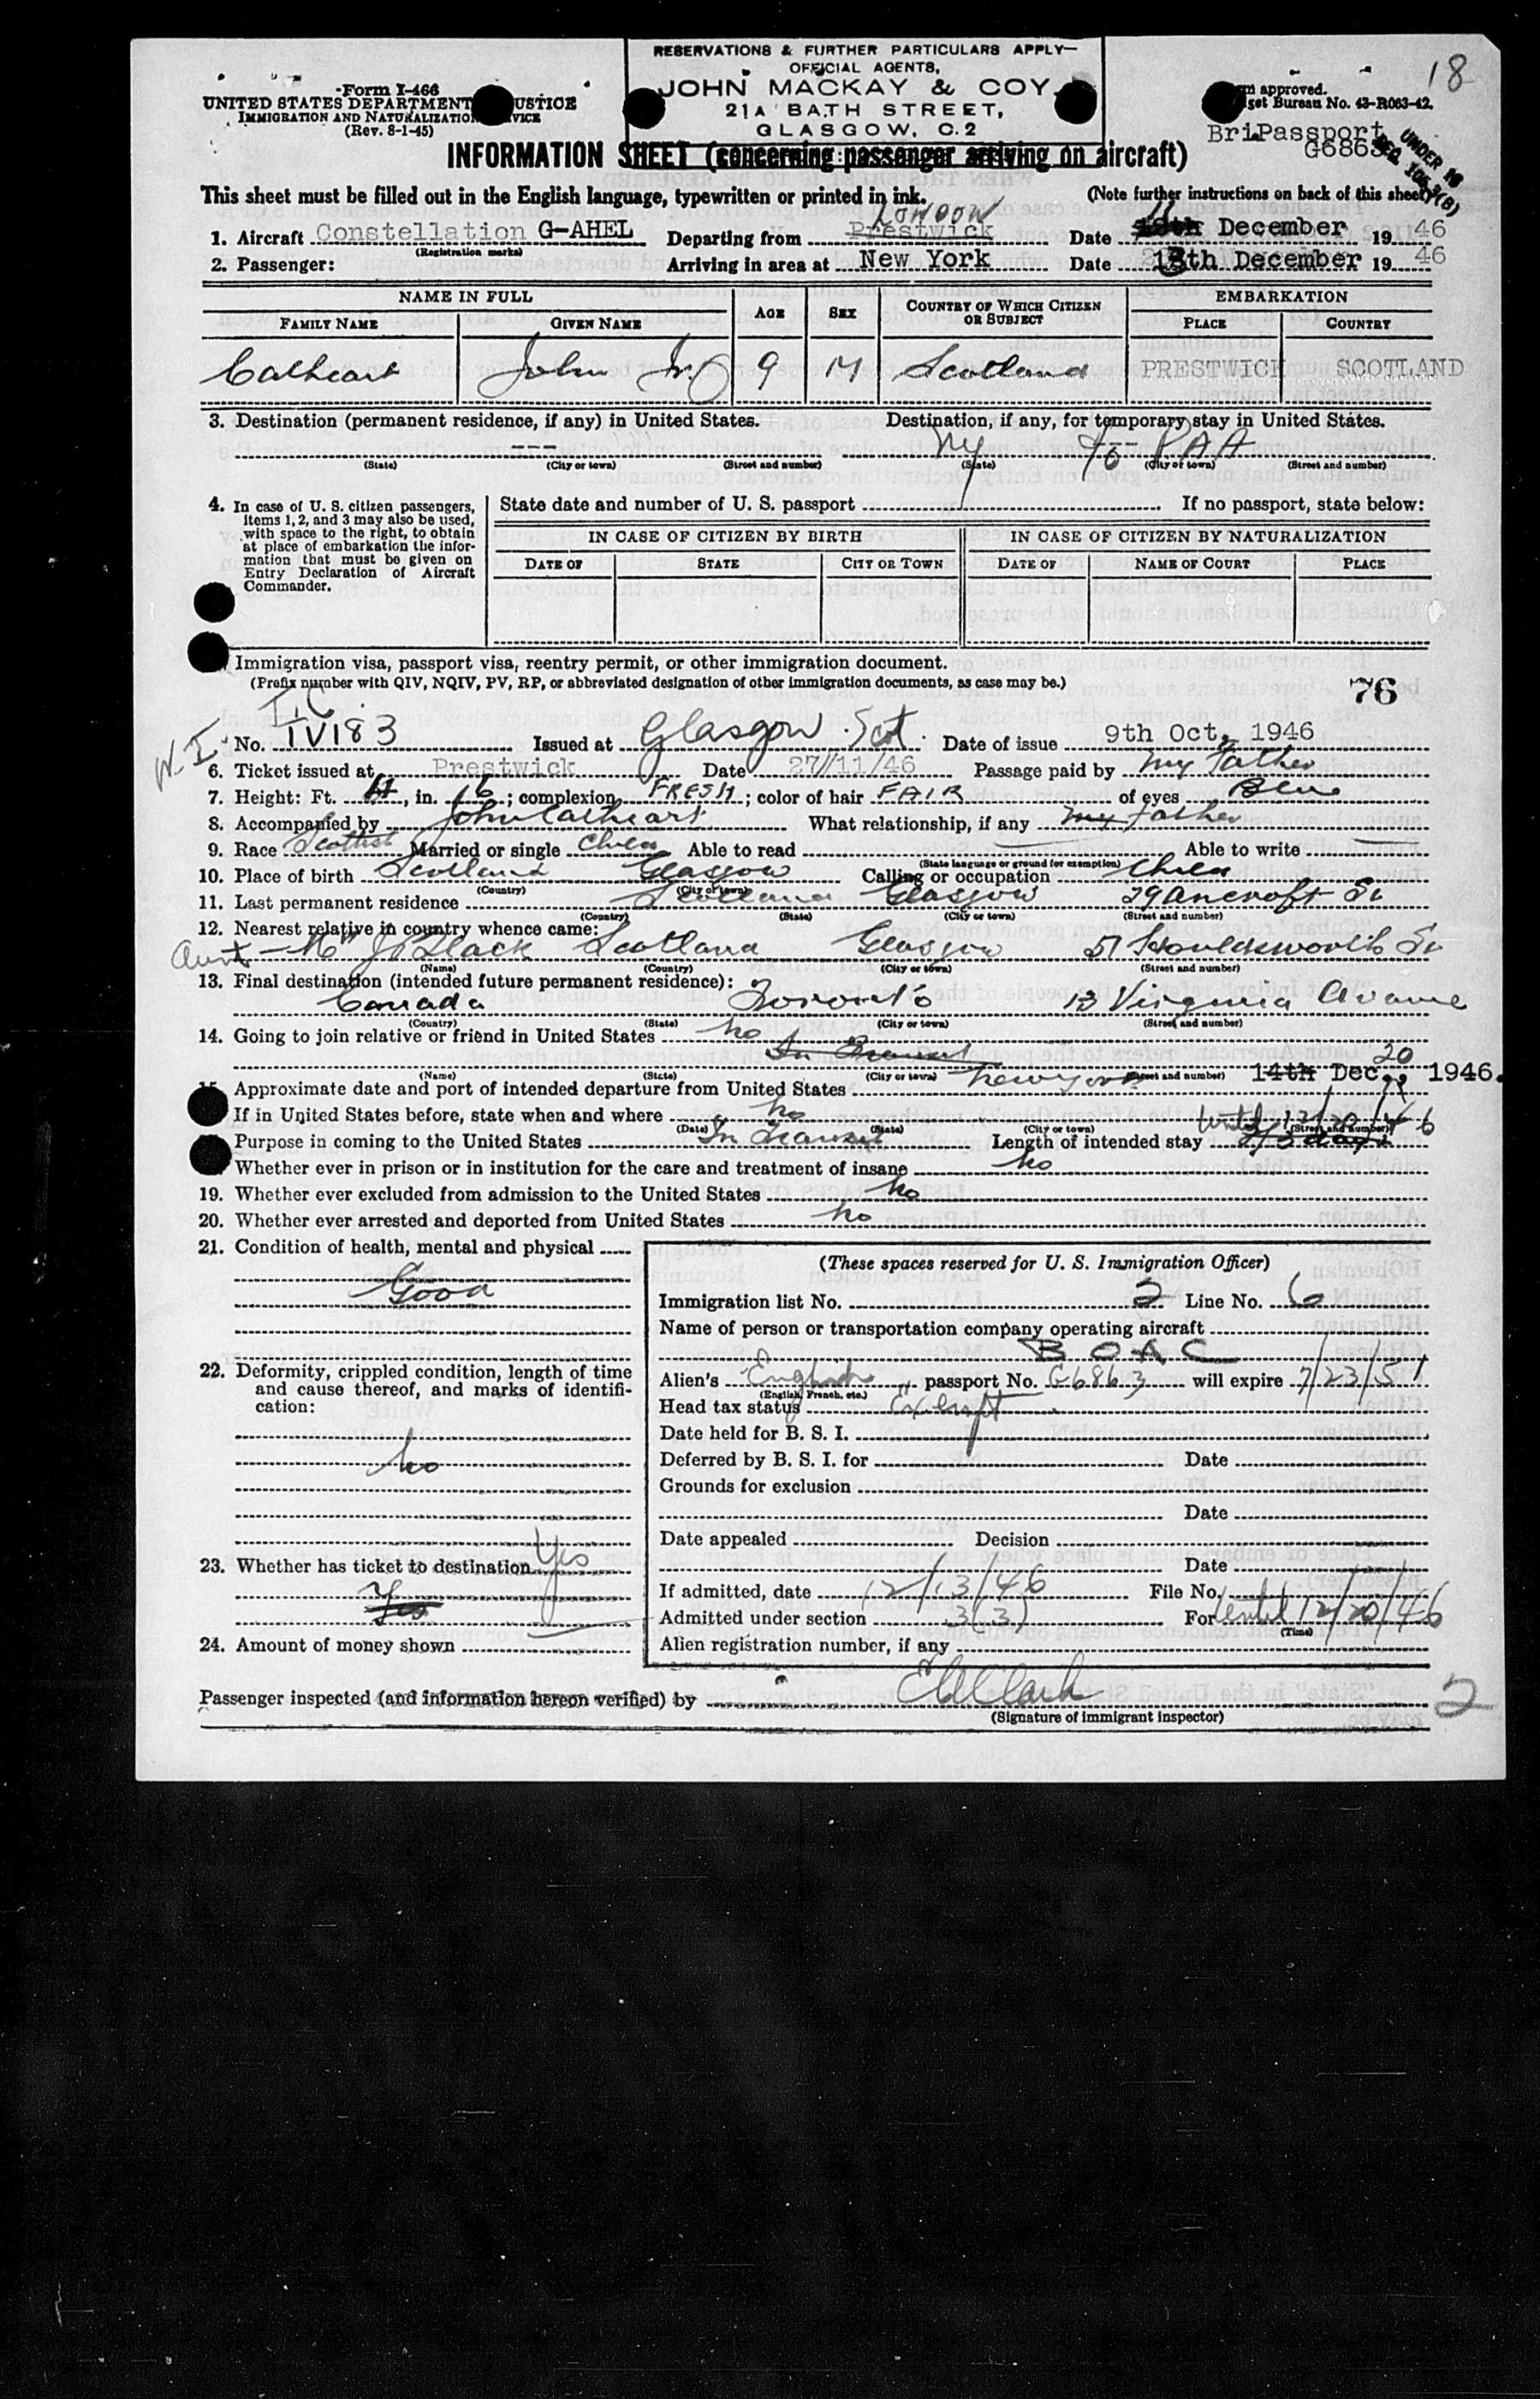 RESERVATIONS & FURTHER PARTICULARS APPLY—
OFFICIAL AGENTS,
JOHN MACKAY & COY.
21A BATH STREET,
GLASGOW, C.2
18
Form I-466
UNITED STATES DEPARTMENT USTICE
IMMIGRATION AND NATURALIZATION VICE
(Rev. 8-1-45)
m approved.
get Bureau No. 43-R063-42.
BriPassport
G6863
UNDER 16
INFORMATION SHEET (concerning passenger arriving on aircraft)
This sheet must be filled out in the English language, typewritten or printed in ink.
(Note further instructions on back of this sheet)
LONDON
1. Aircraft Constellation G-AHEL Departing from Prestwick Date 11 December 1946
(Registration marks)
2. Passenger: Arriving in area at New York Date 13th December 1946
NAME IN FULL AGE SEX COUNTRY OF WHICH CITIZEN OR SUBJECT EMBARKATION
FAMILY NAME GIVEN NAME PLACE COUNTRY
Cathcart John Jr. 9 M Scotland PRESTWICK SCOTLAND
3. Destination (permanent residence, if any) in United States. Destination, if any, for temporary stay in United States.
--- NY --- PAA
(State) (City or town) (Street and number) (State) (City or town) (Street and number)
4. In case of U. S. citizen passengers, items 1, 2, and 3 may also be used, with space to the right, to obtain at place of embarkation the information that must be given on Entry Declaration of Aircraft Commander.
State date and number of U. S. passport If no passport, state below:
IN CASE OF CITIZEN BY BIRTH IN CASE OF CITIZEN BY NATURALIZATION
DATE OF STATE CITY OR TOWN DATE OF NAME OF COURT PLACE
Immigration visa, passport visa, reentry permit, or other immigration document.
(Prefix number with QIV, NQIV, PV, RP, or abbreviated designation of other immigration documents, as case may be.)
76
T.C.
No. IV183 Issued at Glasgow Scot. Date of issue 9th Oct, 1946
6. Ticket issued at Prestwick Date 27/11/46 Passage paid by My Father
7. Height: Ft. 4, in. 6; complexion FRESH; color of hair FAIR of eyes Blue
8. Accompanied by John Cathcart What relationship, if any My Father
9. Race Scottish Married or single Child Able to read Able to write
(State language or ground for exemption)
10. Place of birth Scotland Glasgow Calling or occupation Child
(Country) (City or town)
11. Last permanent residence Scotland Glasgow 29 Ancroft St
(Country) (State) (City or town) (Street and number)
12. Nearest relative in country whence came:
Aunt Mrs J Black Scotland Glasgow 51 Houldsworth St
(Name) (Country) (City or town) (Street and number)
13. Final destination (intended future permanent residence):
Canada Toronto 13 Virginia Avenue
(Country) (State) (City or town) (Street and number)
14. Going to join relative or friend in United States No
In Transit
(Name) (State) (City or town) (Street and number)
20
15. Approximate date and port of intended departure from United States New York 14th Dec., 1946.
If in United States before, state when and where No
(Date) (State) (City or town) (Street and number)
Until 12/20/46
Purpose in coming to the United States In Transit Length of intended stay
Whether ever in prison or in institution for the care and treatment of insane No
19. Whether ever excluded from admission to the United States No
20. Whether ever arrested and deported from United States No
21. Condition of health, mental and physical
Good
22. Deformity, crippled condition, length of time and cause thereof, and marks of identification:
No
23. Whether has ticket to destination Yes
Yes
24. Amount of money shown
(These spaces reserved for U. S. Immigration Officer)
Immigration list No. 2 Line No. 6
Name of person or transportation company operating aircraft
BOAC
Alien's English passport No. G6863 will expire 7/23/51
(English, French, etc.)
Head tax status Exempt
Date held for B. S. I.
Deferred by B. S. I. for Date
Grounds for exclusion
Date
Date appealed Decision
Date
If admitted, date 12/13/46 File No.
Admitted under section 3(3) For Until 12/20/46
(Time)
Alien registration number, if any
Passenger inspected (and information hereon verified) by
(Signature of immigrant inspector)
2